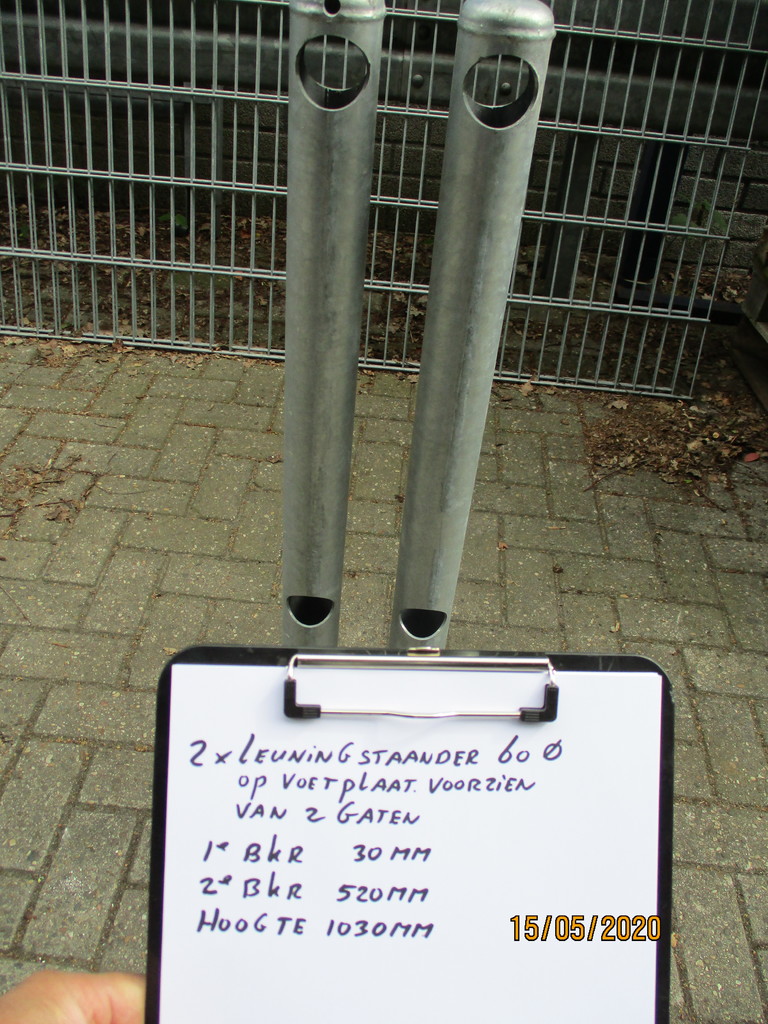 2x LEUNINGSTAANDER 60 Ø
OP VOETPLAAT. VOORZIEN
VAN 2 GATEN
1e BKR 30 MM
2e BKR 520MM
HOOGTE 1030MM
15/05/2020